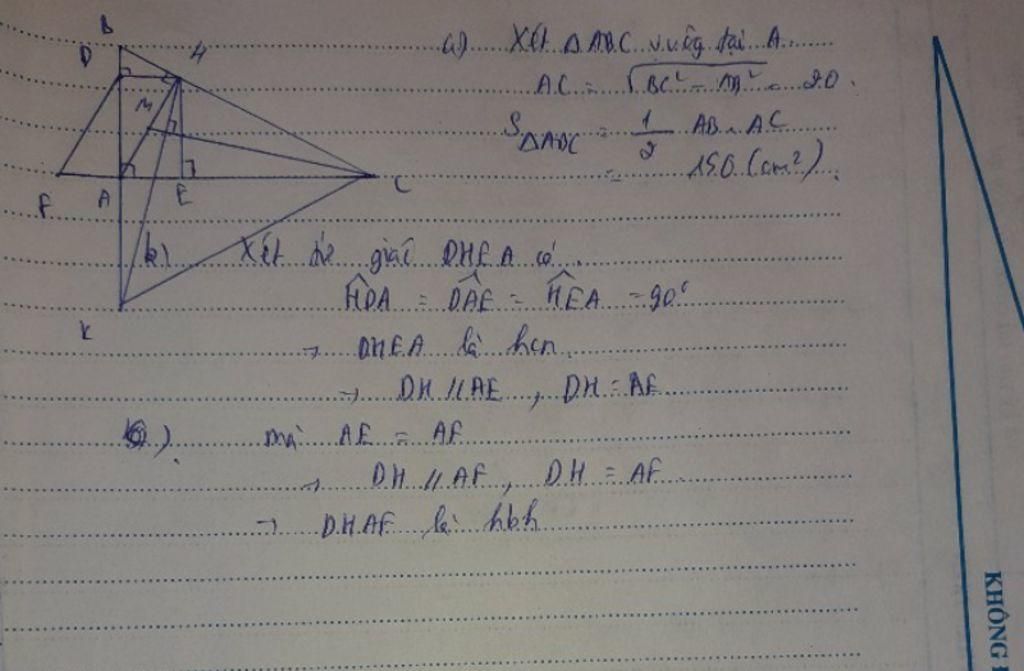 B
D
H
M
F
A
E
C
K
a) Xét ΔABC vuông tại A.
AC = √BC² - AB² = 20.
S ΔABC = 1/2 AB . AC
= 150 (cm²).
b) Xét tứ giác DHEA có
HDA = DAE = HEA = 90°
→ DHEA là hcn.
→ DH // AE , DH = AE
) mà AE = AF
→ DH // AF , DH = AF
→ DHAF là hbh
KHÔNG